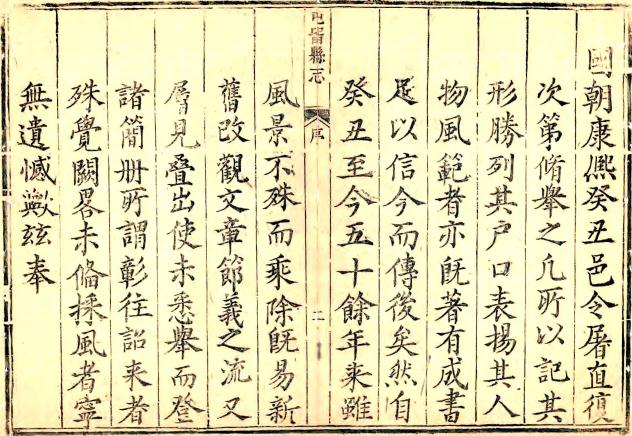 國朝康熈癸丑邑令屠直復
次第脩舉之凢所以記其
形勝列其户口表揚其人
物風範者亦既著有成書
足以信今而傳後矣然自
癸丑至今五十餘年来雖
屯留縣志
序
二
風景不殊而乘除既易新
舊改觀文章節義之流又
層見疊出使未悉舉而登
諸簡册所謂彰往詔来者
殊覺闕畧未備採風者寧
無遺憾歟玆奉